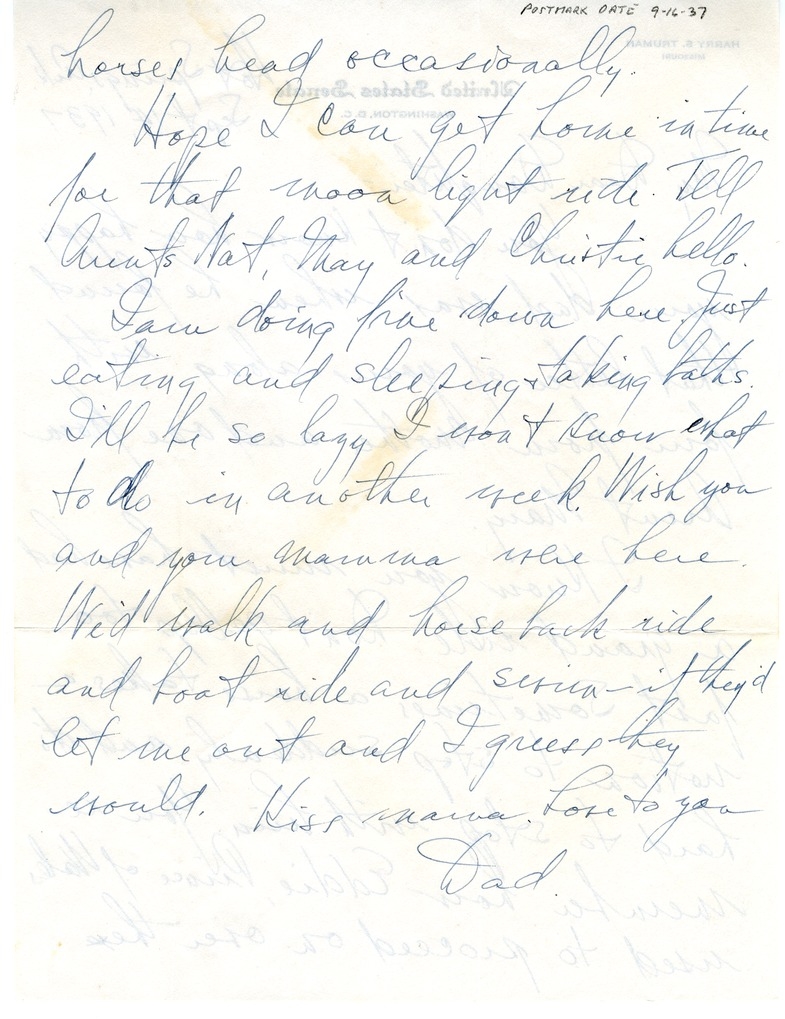 POSTMARK DATE 9-16-37
horses head occasionally.
Hope I can get home in time
for that moon light ride. Tell
Aunts Nat, May and Christie hello.
I am doing fine down here. Just
eating and sleeping & taking baths.
I'll be so lazy I won't know what
to do in another week. Wish you
and your mamma were here.
We'd walk and horse back ride
and boat ride and swim - if they'd
let me out and I guess they
would. Kiss mama. Love to you
Dad.